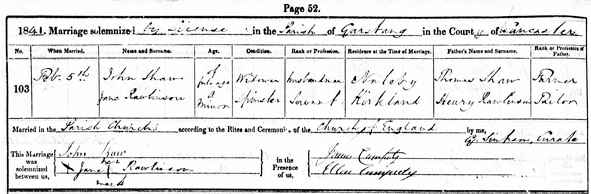 Page 52.
1841. Marriage solemnized by License in the Parish of Garstang in the County of Lancaster
No. When Married. Name and Surname. Age. Condition. Rank or Profession. Residence at the Time of Marriage. Father's Name and Surname. Rank or Profession of Father.
103 Feb. 5th John Shaw of full age Widower Husbandman Nateby Thomas Shaw Farmer
Jane Rawlinson Minor Spinster Servant Kirkland Henry Rawlinson Tailor
Married in the Parish Church according to the Rites and Ceremonies of the Church of England by me,
Simpson, Curate
This Marriage was solemnized between us, John Shaw
X Jane Rawlinson
her mark
in the Presence of us,
James
Ellen